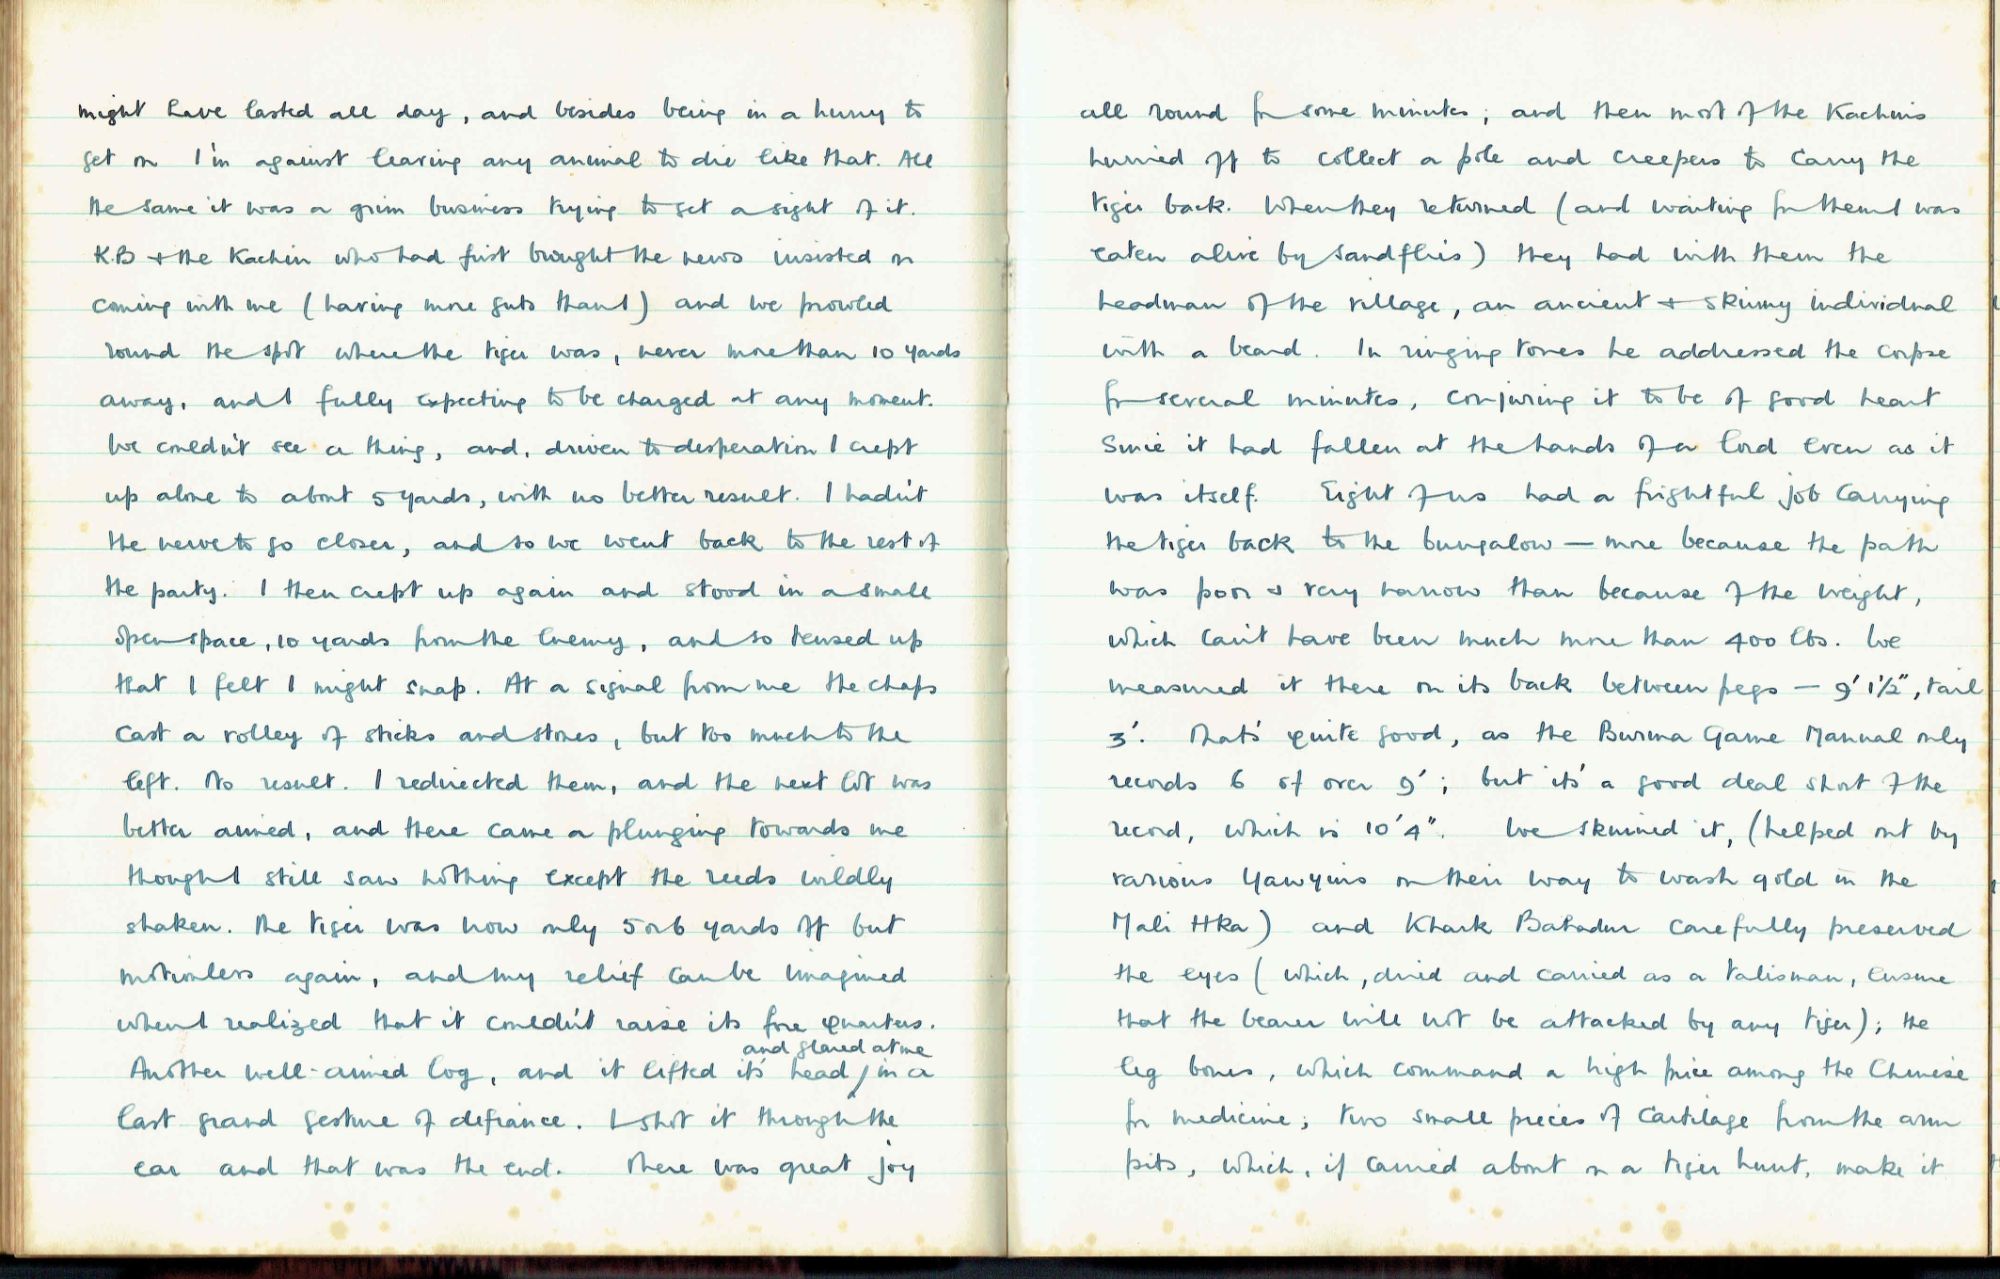 might have lasted all day, and besides being in a hurry to
get on I'm against leaving any animal to die like that. All
the same it was a grim business trying to get a sight of it.
K.B + the Kachin who had first brought the news insisted on
coming with me (having more guts than I) and we prowled
round the spot where the tiger was, never more than 10 yards
away, and I fully expecting to be charged at any moment.
We couldn't see a thing, and, driven to desperation I crept
up alone to about 5 yards, with no better result. I hadn't
the nerve to go closer, and so we went back to the rest of
the party. I then crept up again and stood in a small
open space, 10 yards from the Enemy, and so tensed up
that I felt I might snap. At a signal from me the chaps
cast a volley of sticks and stones, but too much to the
left. No result. I redirected them, and the next lot was
better aimed, and there came a plunging towards me
though I still saw nothing except the reeds wildly
shaken. The tiger was now only 5 or 6 yards off but
motionless again, and my relief can be imagined
when I realized that it couldn't raise its fore quarters.
and glared at me
Another well-aimed log, and it lifted its head / in a
last grand gesture of defiance. I shot it through the
ear and that was the end. There was great joy
all round for some minutes; and then most of the Kachins
hurried off to collect a pole and creepers to carry the
tiger back. When they returned (and waiting for them I was
eaten alive by sandflies) they had with them the
headman of the village, an ancient + skinny individual
with a beard. In ringing tones he addressed the corpse
for several minutes, conjuring it to be of good heart
since it had fallen at the hands of a lord even as it
was itself. Eight of us had a frightful job carrying
the tiger back to the bungalow — more because the path
was poor & very narrow than because of the weight,
which can't have been much more than 400 lbs. We
measured it there on its back between pegs — 9' 1½", tail
3'. That's quite good, as the Burma Game Manual only
records 6 of over 9'; but it's a good deal short of the
record, which is 10'4". We skinned it, (helped out by
various Yawyins on their way to wash gold in the
Mali Hka) and Khark Bahadur carefully preserved
the eyes (which, dried and carried as a talisman, ensure
that the bearer will not be attacked by any tiger); the
leg bones, which command a high price among the Chinese
for medicine; two small pieces of cartilage from the arm
pits, which, if carried about on a tiger hunt, make it